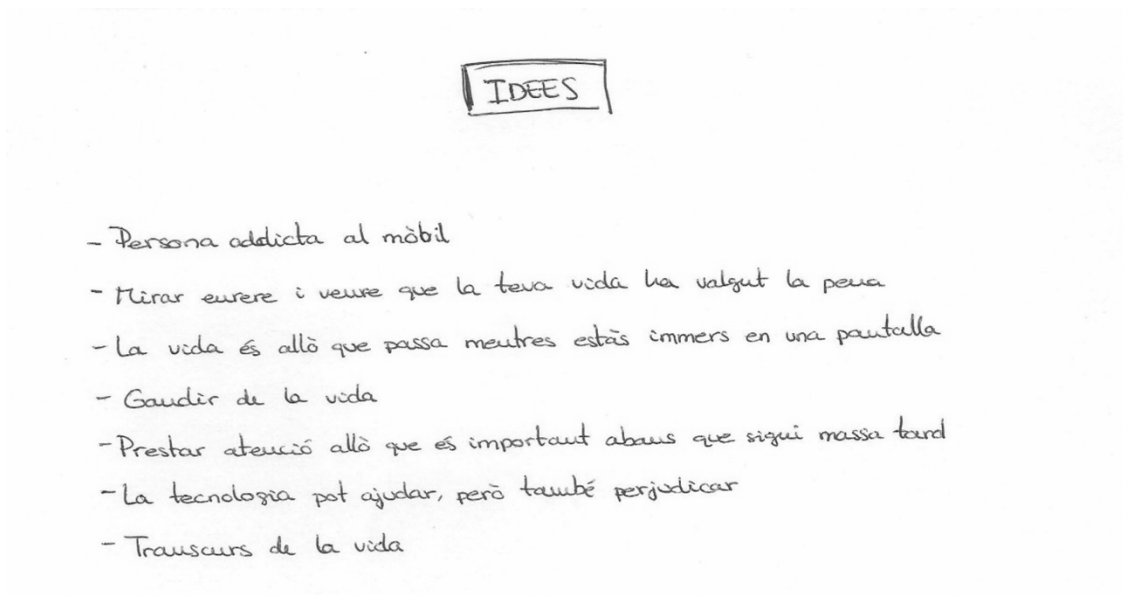 IDEES
- Persona addicta al mòbil
- Mirar enrere i veure que la teva vida ha valgut la pena
- La vida és allò que passa mentres estàs immers en una pantalla
- Gaudir de la vida
- Prestar atenció allò que és important abans que sigui massa tard
- La tecnologia pot ajudar, però també perjudicar
- Transcurs de la vida